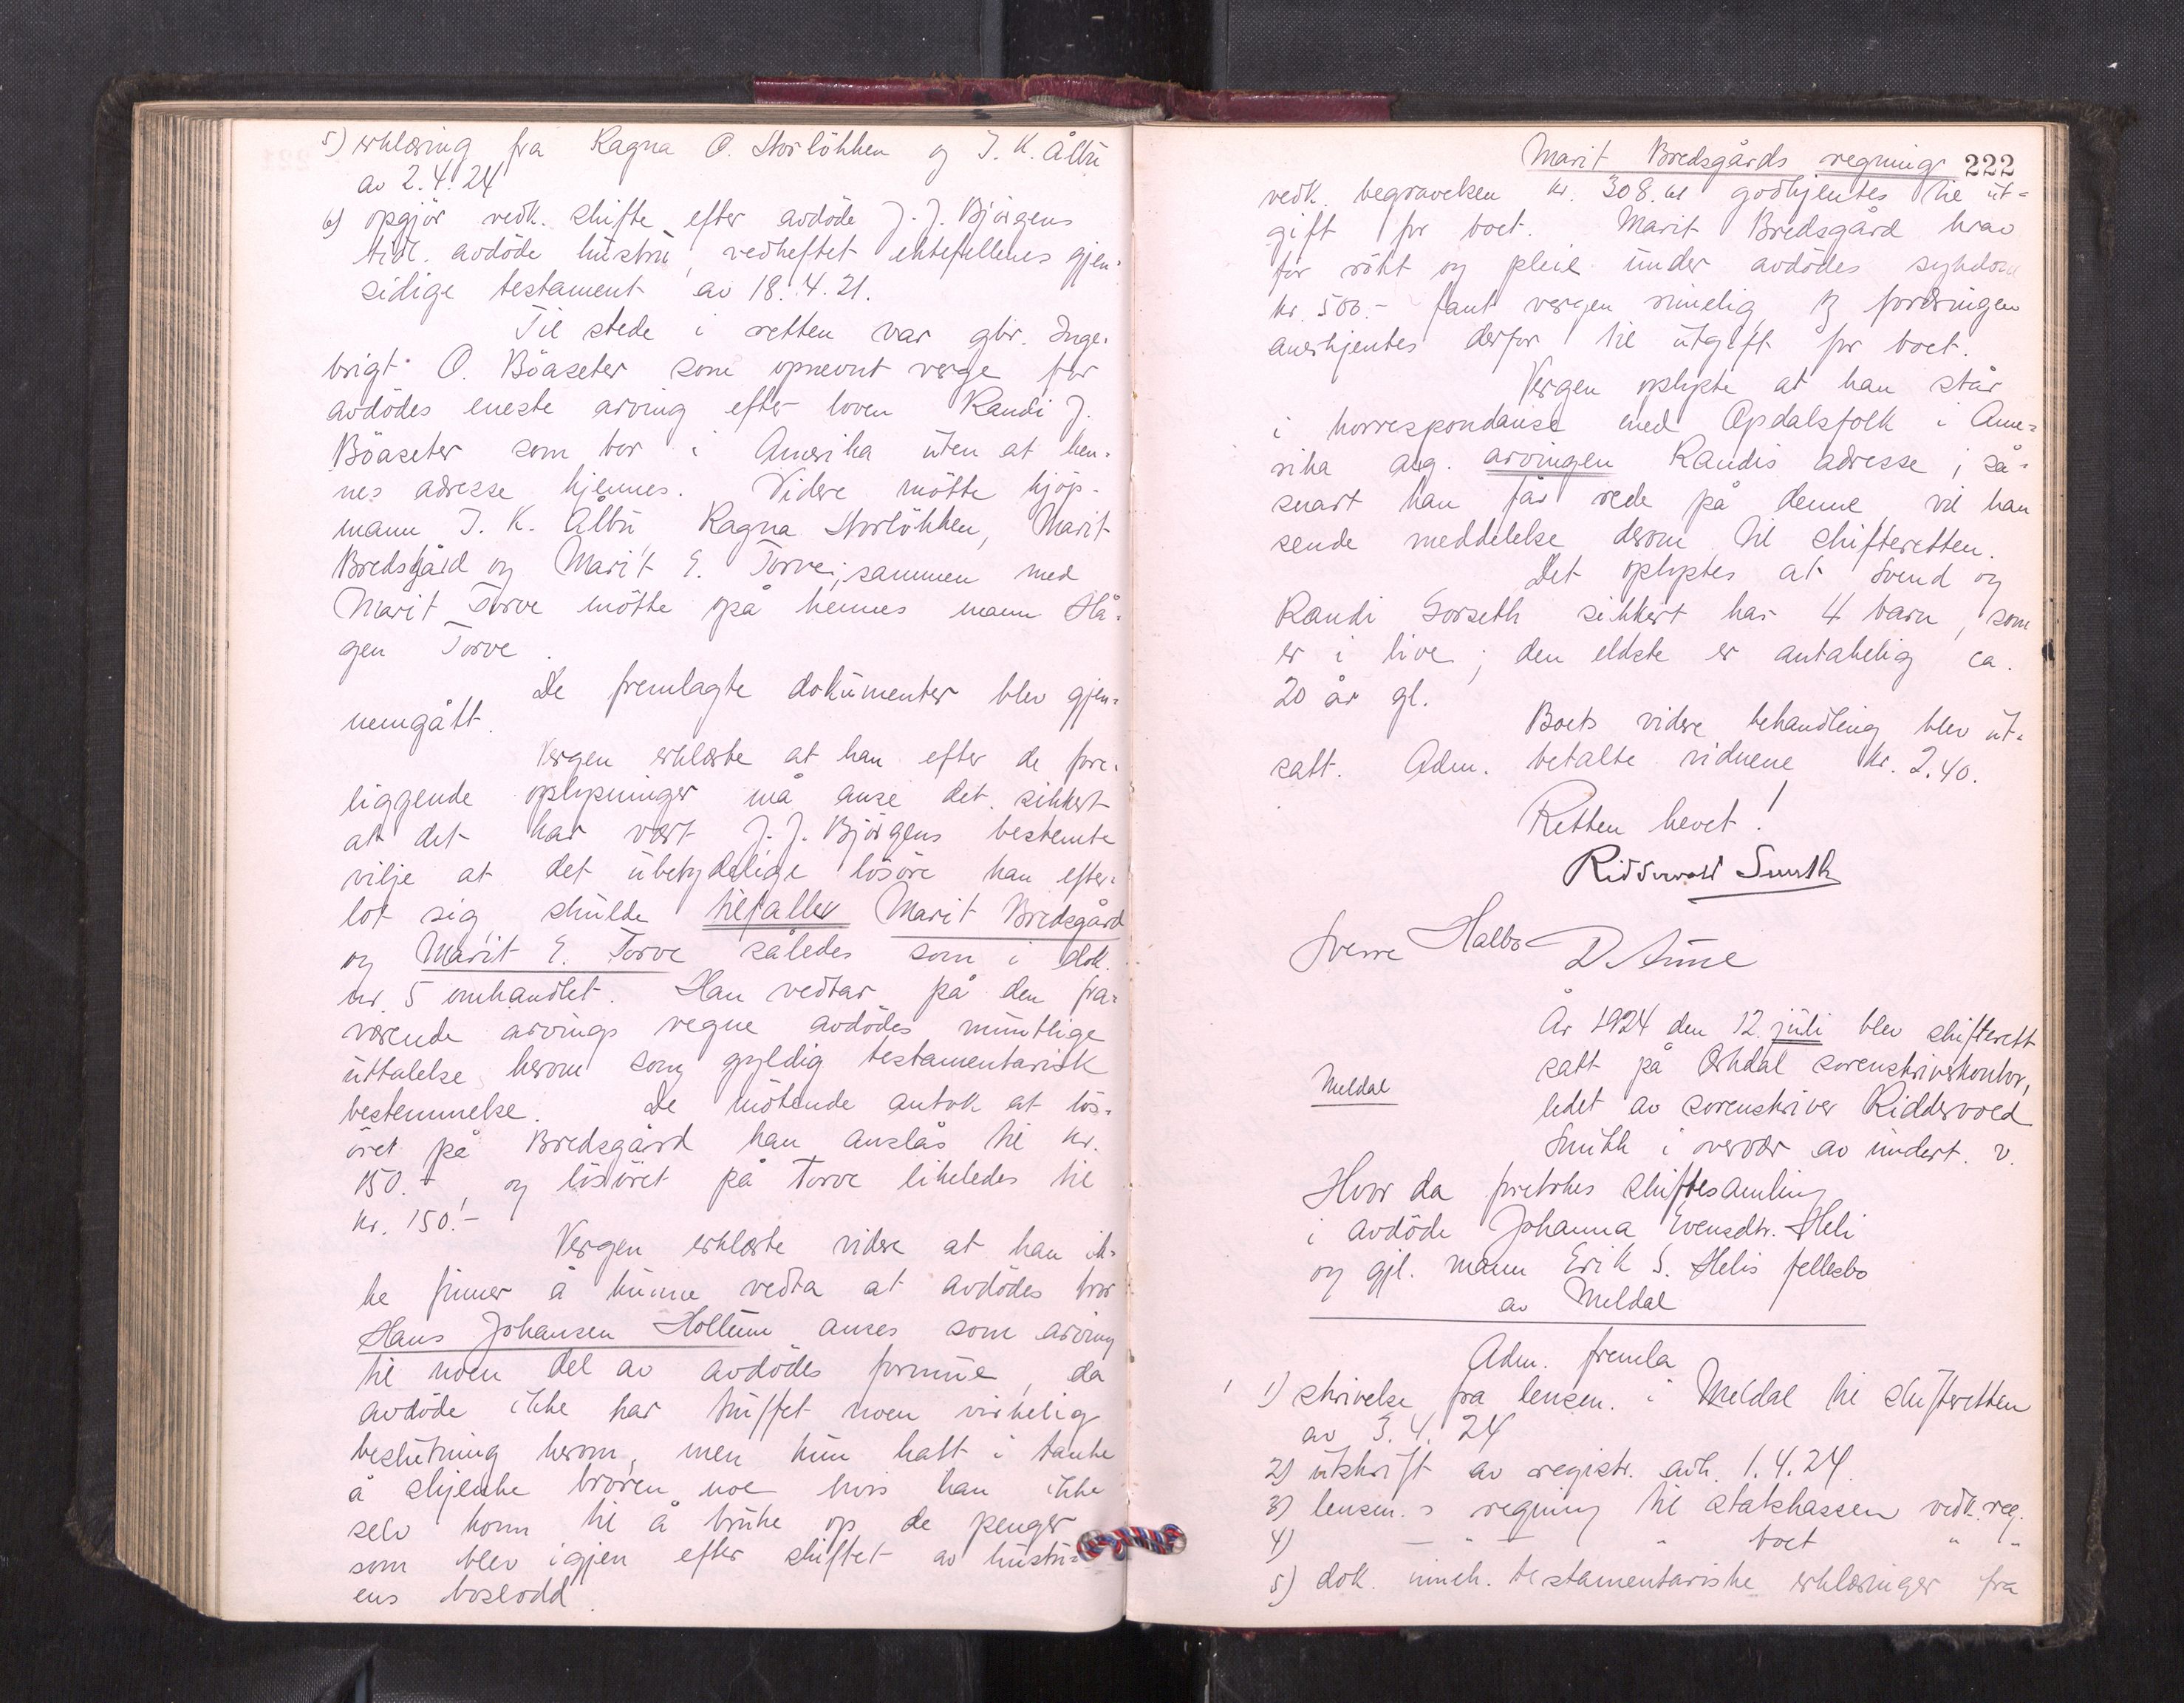 5) erklæring fra Ragna O. Storlökken og J. K. Ålbu
av 2.4.24
6) opgjör vedk. skifte efter avdöde J. J. Björgens
tidl. avdöde hustru, vedheftet ektefellenes gjen-
sidige testament av 18.4.21.
Til stede i retten var gbr. Inge-
brigt O. Böaseter som opnevnt verge for
avdödes eneste arving efter loven Randi J.
Böaseter som bor i Amerika uten at hen-
nes adresse kjennes. Videre mötte kjöp-
mann J. K. Ålbu, Ragna Storlökken, Marit
Bredsgård og Marit E. Torve; sammen med
Marit Torve mötte også hennes mann Hå-
gen Torve.
De fremlagte dokumenter blev gjen-
nemgått.
Vergen erklærte at han efter de fore-
liggende oplysninger må anse det sikkert
at det har vært J. J. Björgens bestemte
vilje at det ubetydelige lösöre han efter-
lot sig skulde tilfalle Marit Bredsgård
og Marit E. Torve således som i dok.
nr. 5 omhandlet. Han vedtar på den fra-
værende arvings vegne avdödes muntlige
uttalelse herom som gyldig testamentarisk
bestemmelse. De mötende antok at lös-
öret på Bredsgård kan anslås til kr.
150.-, og lösöret på Torve likeledes til
kr. 150.-
Vergen erklærte videre at han ik-
ke finner å kunne vedta at avdödes bror
Hans Johansen Holtum anses som arving
til noen del av avdödes formue, da
avdöde ikke har truffet noen virkelig
beslutning herom, men kun hatt i tanke
å skjenke broren noe hvis han ikke
selv kom til å bruke op de penger
som blev igjen efter skiftet av hustru-
ens boslodd.
Marit Bredsgårds regning 222
vedk. begravelsen kr. 308.61 godkjentes til ut-
gift for boet. Marit Bredsgård krav
for rökt og pleie under avdödes sykdom
kr. 500.- fant vergen rimelig og fordringen
anerkjentes derfor til utgift for boet.
Vergen oplyste at han står
i korrespondanse med Opdalsfolk i Ame-
rika ang. arvingen Randis adresse; så-
snart han får rede på denne vil han
sende meddelelse derom til skifteretten.
Det oplystes at Svend og
Randi Gorseth sikkert har 4 barn, som
er i live; den eldste er antakelig ca.
20 år gl.
Boets videre behandling blev ut-
satt. Adm. betalte vidnene kr. 2.40.
Retten hevet!
Riddervold Smith
Sverre Halbo D. Aune
År 1924 den 12. juli blev skifterett
satt på Orkdal sorenskriverkontor,
Meldal
ledet av sorenskriver Riddervold
Smith i overvær av undert. v.
Hvor da foretokes skiftesamling
i avdöde Johanna Evensdtr. Heli
og gjl. mann Erik S. Helis fellesbo
av Meldal
Adm. fremla
1) skrivelse fra lensm. i Meldal til skifteretten
av 3.4.24
2) utskrift av registr. avh. 1.4.24
3) lensm.s regning til statskassen vedk. reg.
4) — " — " boet " "
5) dok. inneh. testamentariske erklæringer fra